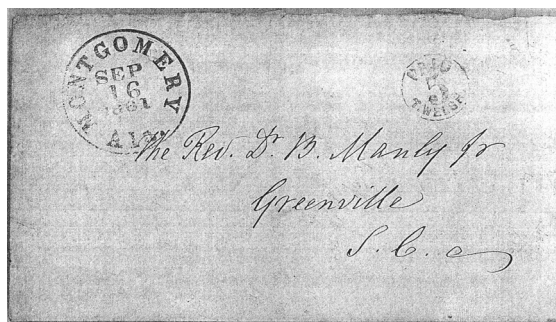 MONTGOMERY
SEP
16
1861
ALA.
PAID
5
T. WELSH
The Rev. Dr. B. Manly Jr
Greenville
S. C.